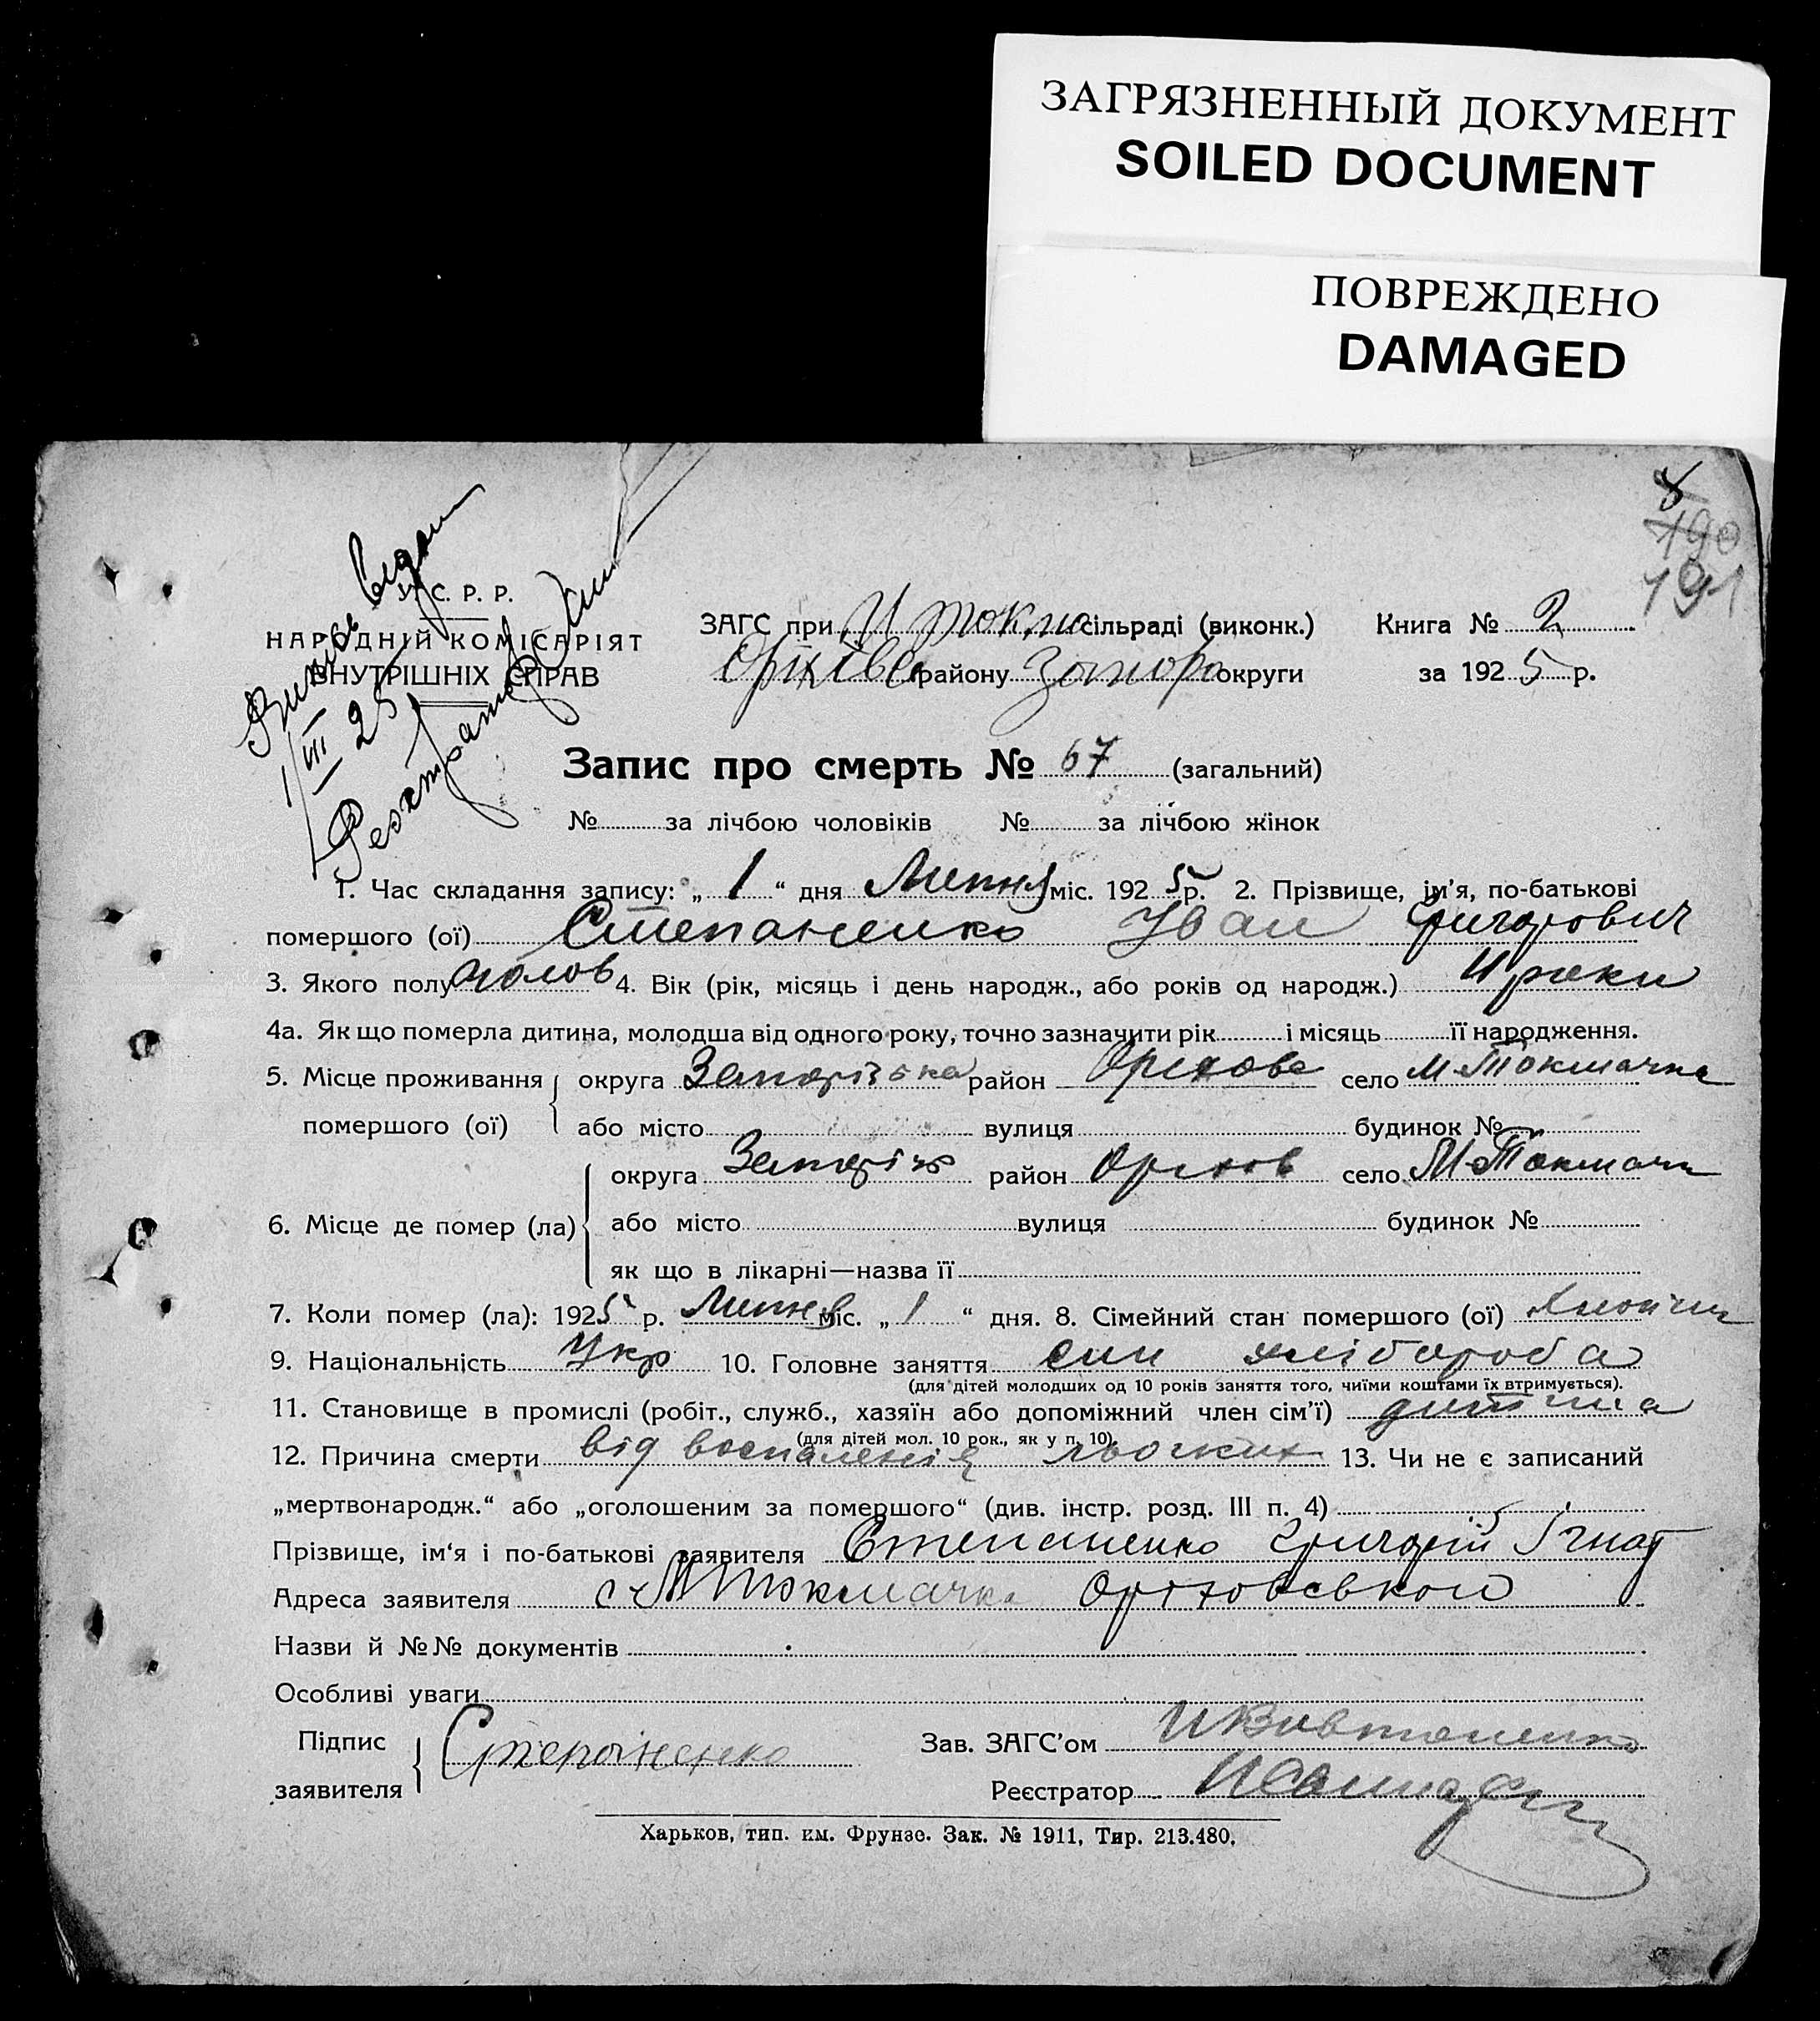 ЗАГРЯЗНЕННЫЙ ДОКУМЕНТ
SOILED DOCUMENT
ПОВРЕЖДЕНО
DAMAGED
8
190
191
У. С. Р. Р.
НАРОДНІЙ КОМІСАРІЯТ
ВНУТРІШНІХ СПРАВ
1/III 25
ЗАГС при М токма сільраді (виконк.) Книга № 2
Оріхівс району Запоро округи за 1925 р.
Запис про смерть № 67 (загальний)
№ за лічбою чоловіків № за лічбою жінок
1. Час складання запису: „ 1 “ дня Липня міс. 1925 р. 2. Прізвище, ім’я, по-батькові
помершого (ої) Степаненко Іван Григорович
3. Якого полу чолов 4. Вік (рік, місяць і день народж., або років од народж.) роки
4а. Як що померла дитина, молодша від одного року, точно зазначити рік і місяць її народження.
5. Місце проживання округа Запорізька район Оріхове село М-Токмачка
помершого (ої) або місто вулиця будинок №
округа Запоріж район Оріхов село М-Токмачк
6. Місце де помер (ла) або місто вулиця будинок №
як що в лікарні—назва її
7. Коли помер (ла): 1925 р. Липня міс. „ 1 “ дня. 8. Сімейний стан помершого (ої)
9. Національність Укр 10. Головне заняття син хлібороба
(для дітей молодших од 10 років заняття того, чиїми коштами їх втримується).
11. Становище в промислі (робіт., служб., хазяїн або допоміжний член сім’ї) дитина
(для дітей мол. 10 рок., як у п. 10)
12. Причина смерти від воспаленія льогких 13. Чи не є записаний
„мертвонародж.“ або „оголошеним за помершого“ (див. інстр. розд. III п. 4)
Прізвище, ім‘я і по-батькові заявителя Степаненко Григорій Ігнат
Адреса заявителя с М Токмачка Оріховської
Назви й №№ документів
Особливі уваги
Підпис Степаненко Зав. ЗАГС’ом
заявителя Реєстратор
Харьков, тип. им. Фрунзе. Зак. № 1911, Тир. 213.480.